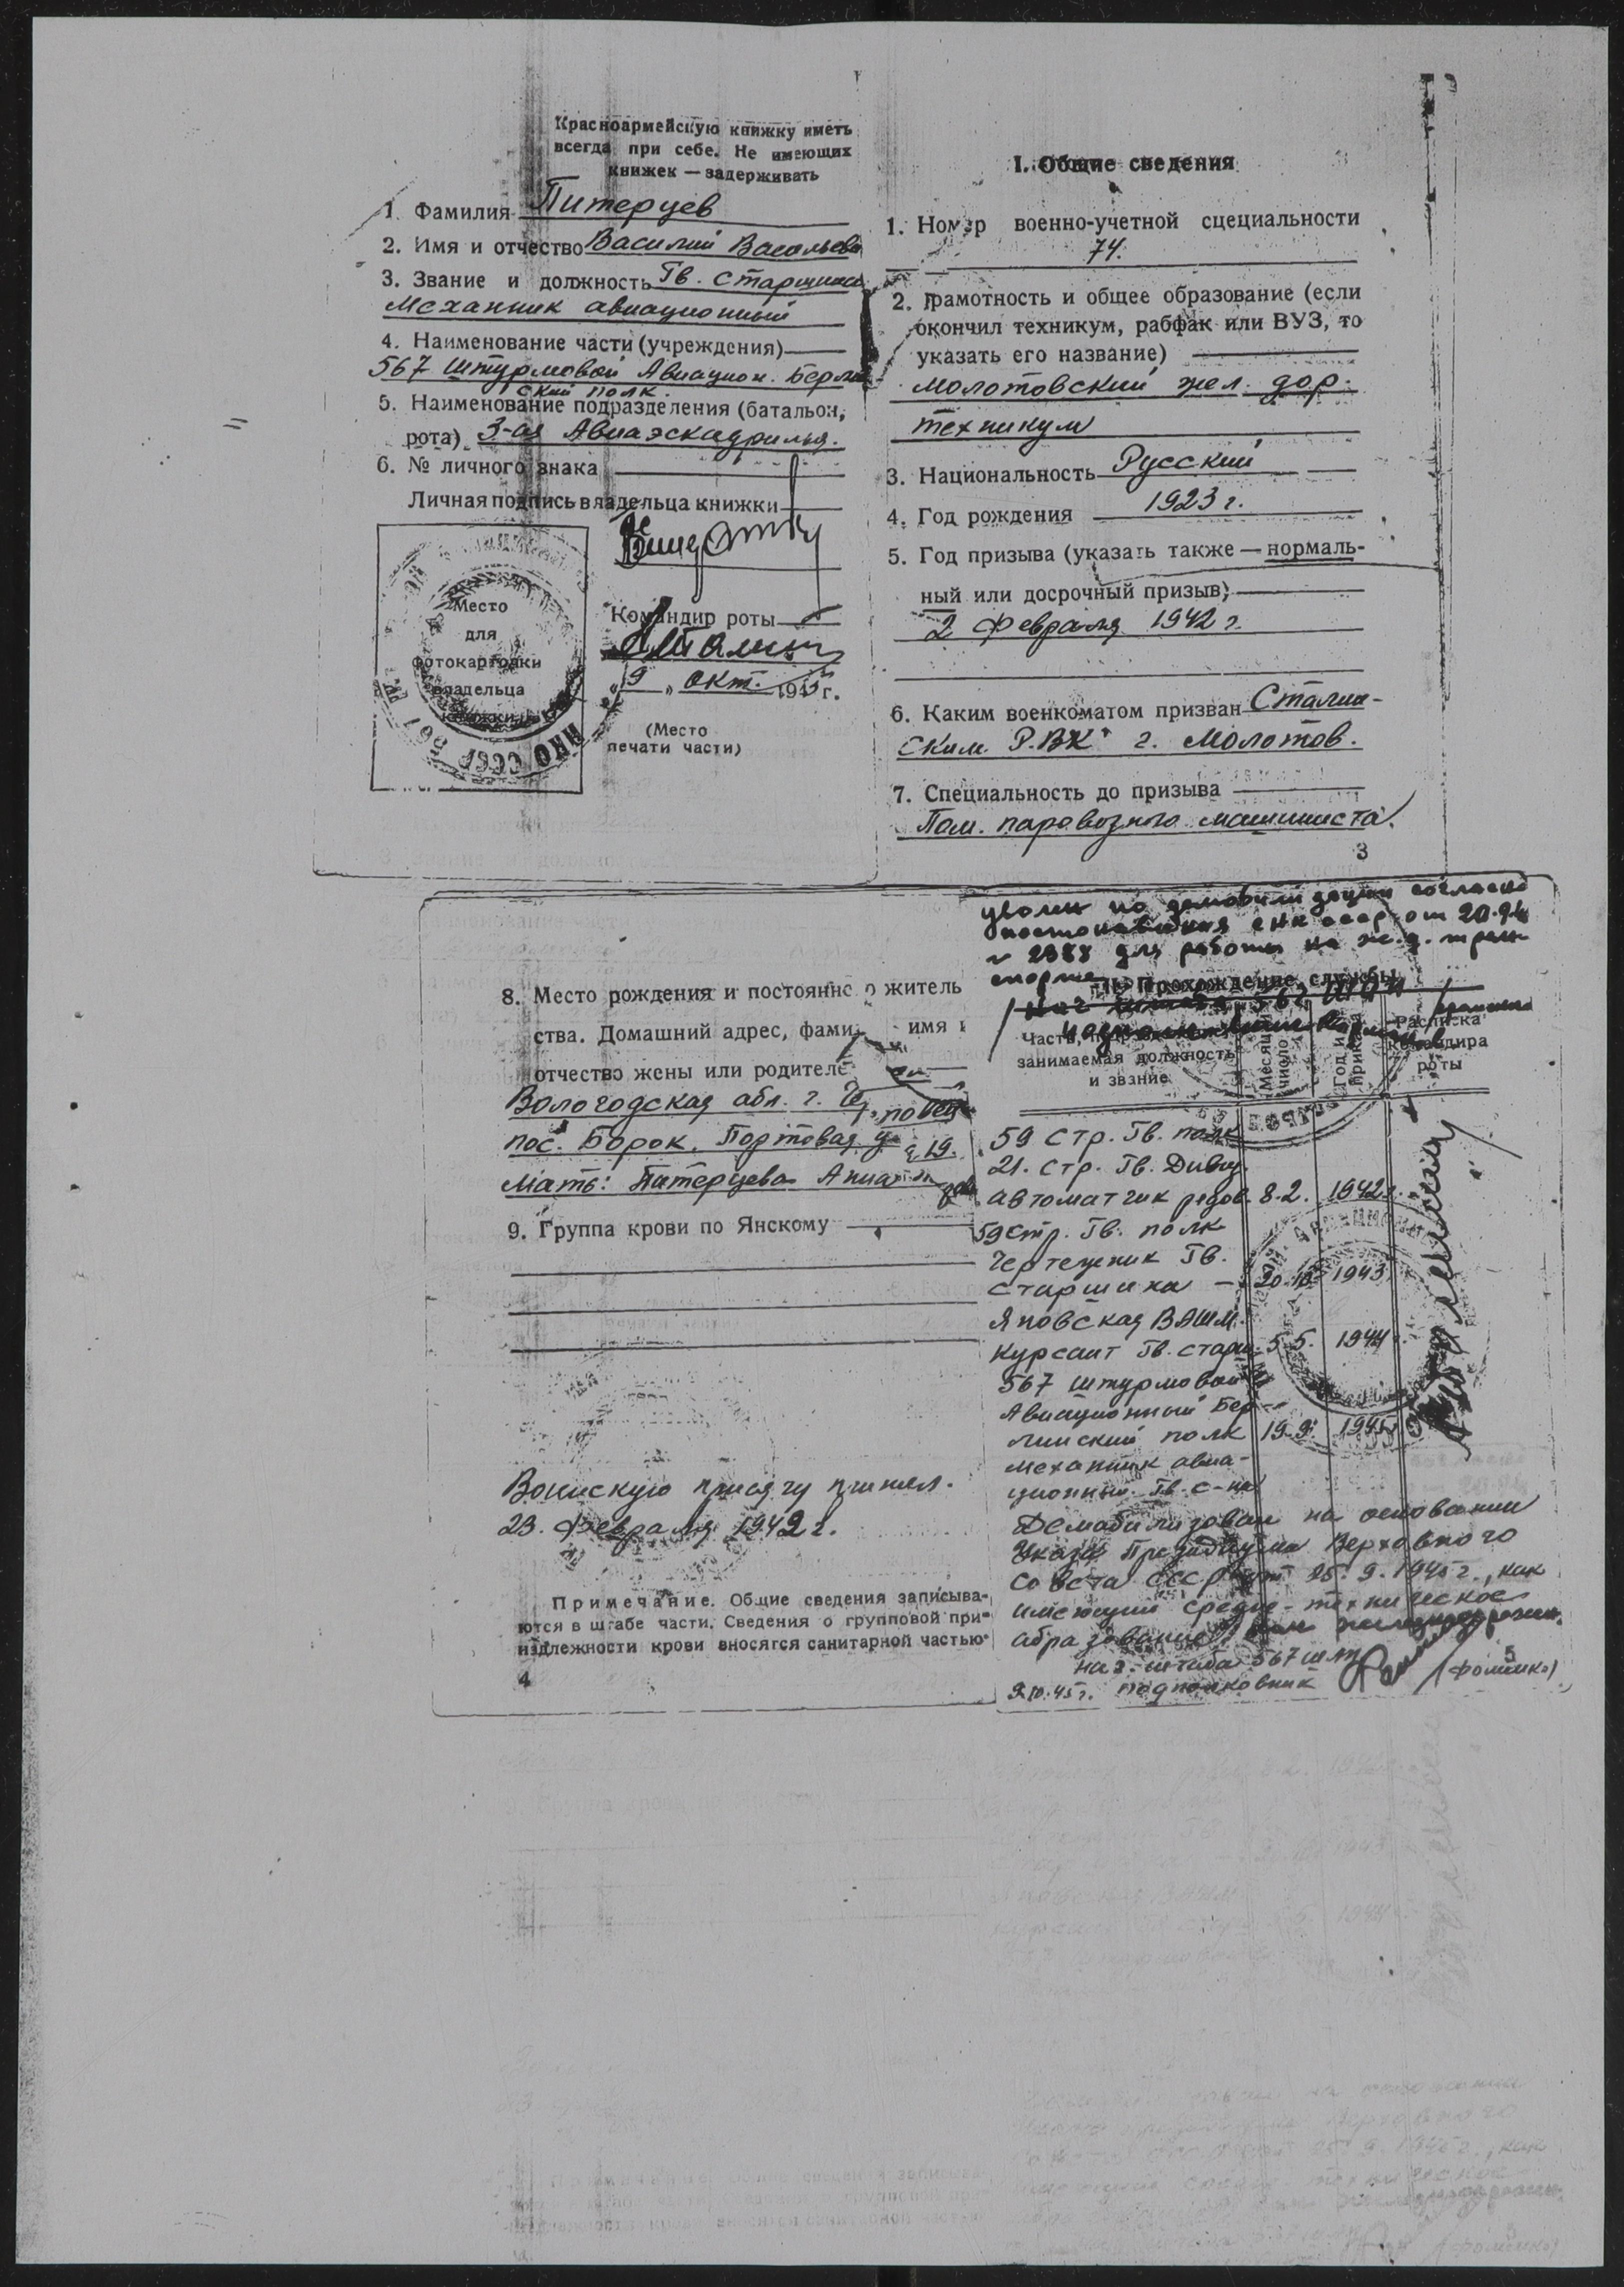 Красноармейскую книжку иметь
всегда при себе. Не имеющих
книжек — задерживать
1. Фамилия Питерцев
2. Имя и отчество Василий Васильев
3. Звание и должность Гв. старшина
Механик авиационный
4. Наименование части (учреждения)
567 Штурмовой Авиацион. Берлин-
ский полк.
5. Наименование подразделения (батальон,
рота) 3-ая Авиаэскадрилья.
6. № личного знака
Личная подпись владельца книжки
Место
для
фотокарточки
владельца
книжки
НКО СССР 567
Командир роты
„9„ окт. 1945 г.
(Место
печати части)
I. Общие сведения
1. Номер военно-учетной сцециальности
74.
2. Грамотность и общее образование (если
окончил техникум, рабфак или ВУЗ, то
указать его название)
Молотовский жел. дор.
техникум
3. Национальность Русский
4. Год рождения 1923 г.
5. Год призыва (указать также — нормаль-
ный или досрочный призыв)
2 февраля 1942 г.
6. Каким военкоматом призван Сталин-
ским Р.ВК г. Молотов.
7. Специальность до призыва
Пом. паровозного машиниста.
3
8. Место рождения и постоянно о житель
ства. Домашний адрес, фами имя и
отчество жены или родителе
Вологодская обл. г. Че повец
пос. Борок. Портовая у 19.
Мать: Питерцева Анна
9. Группа крови по Янскому
Воинскую присягу принял.
23. февраля 1942 г.
Примечание. Общие сведения записыва-
ются в штабе части. Сведения о групповой при-
надлежности крови вносятся санитарной частью
4
уволен по демобилизации согласно
постановления СНК СССР от 20.9.
№ 2388 для работы на ж.д. тран-
спорте
II. Прохождение службы
Нач штаба 567 ШАП
Часть,
занимаемая должность
и звание
Месяц и
число
Год и
приказ
Расписка
командира
роты
59 Стр. Гв. полк
21. Стр. Гв. Дивиз.
автоматчик рядов. 8.2. 1942 г.
59 стр. Гв. полк
Чертежник Гв.
Старшина — 20.10 1943
Яновская ВАШМ.
Курсант Гв. старш. 5.5. 1944 г.
567 Штурмовой
Авиационный Бер-
линский полк 19.9. 1945
механик авиа-
ционный Гв. с-на
Демобилизован на основании
Указа Президиума Верховного
Совета СССР от 25.9.1945 г., как
имеющий средне-техническое
образование
нач. штаба 567 шап
9.10.45 г. подполковник (Фоменко)
5